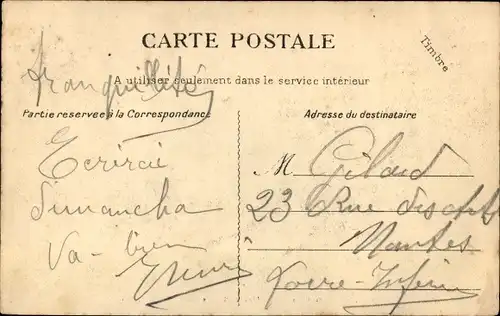 CARTE POSTALE
Timbre
A utiliser seulement dans le service intérieur
tranquillité
Partie reservee à la Correspondance
Adresse du destinataire
Ecrirai
Dimancha
Va-bien
M Gilard
23 Rue des
Nantes
Loire-Inférie